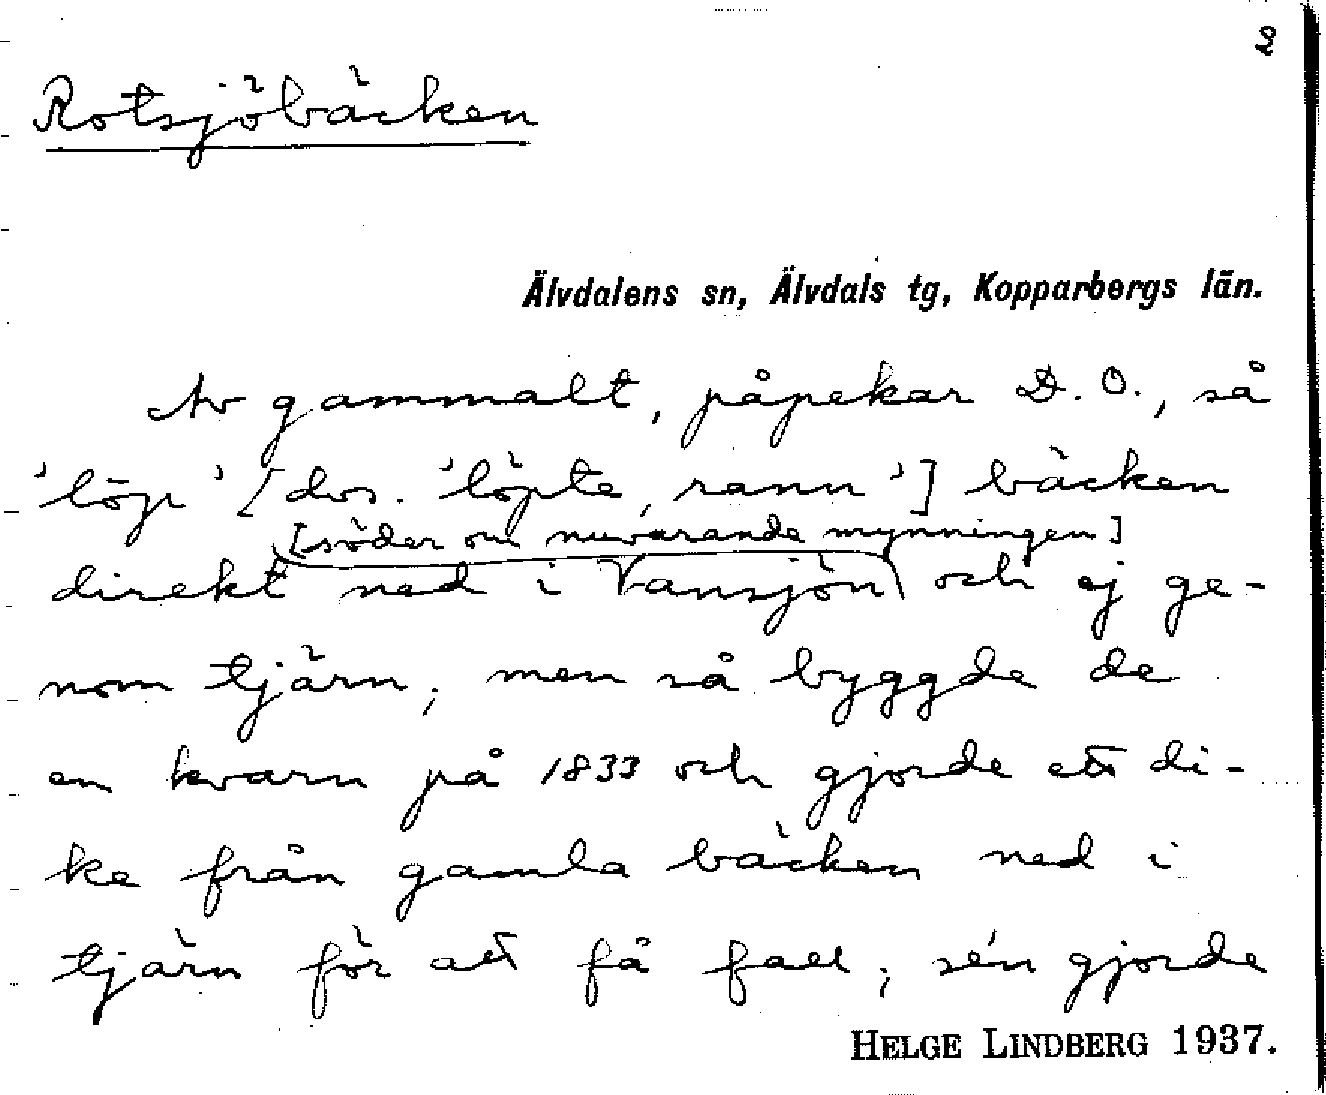 2
Rotsjöbäcken
Älvdalens sn, Älvdals tg, Kopparbergs län.
Av gammalt, påpekar D. O., så
'löp' [dvs. 'löpte, rann'] bäcken
[söder om nuvarande mynningen]
direkt ned i Vansjön och ej ge-
nom tjärn; men så byggde de
en kvarn på 1833 och gjorde ett di-
ke från gamla bäcken ned i
tjärn för att få fall; sén gjorde
HELGE LINDBERG 1937.